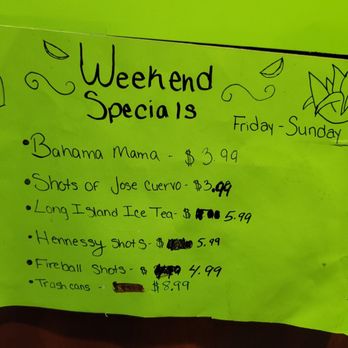 Weekend
Specials
Friday - Sunday
• Bahama Mama - $3.99
• Shots of Jose Cuervo - $3.99
• Long Island Ice Tea - $ 5.99
• Hennessy Shots - $ 5.99
• Fireball Shots - $ 4.99
• Trashcans - $8.99